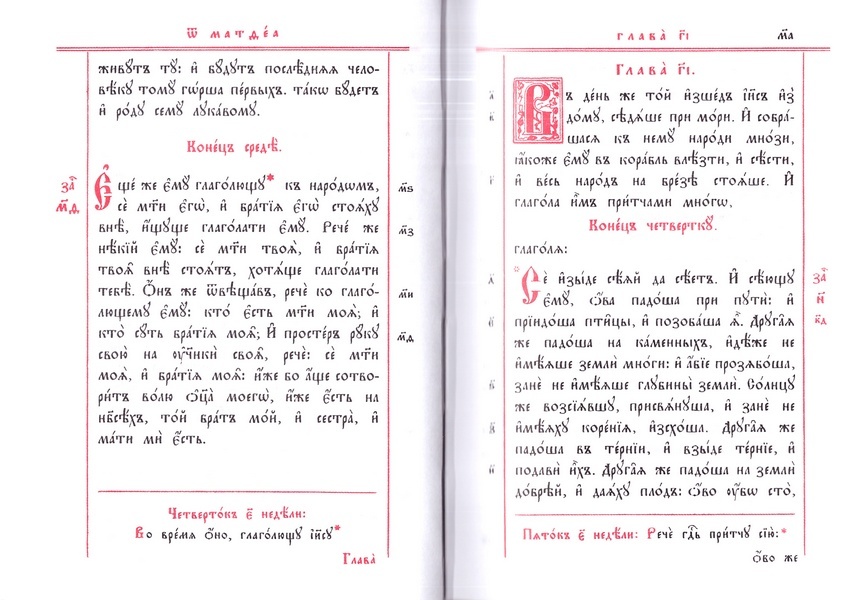 Ѿ МАТѲЕ́А
живꙋтъ тꙋ̀: и҆ бꙋ́дꙋтъ послѣ̑днѧѧ чело-
вѣ́кꙋ томꙋ̀ гѡ́рша пе́рвыхъ. та́кѡ бꙋ́детъ
и҆ ро́дꙋ семꙋ̀ лꙋка́вомꙋ.
Коне́цъ средѣ̀.
за҃
м҃д
Е҆ще́ же є҆мꙋ̀ глаго́лющꙋ* къ наро́дѡмъ,
м҃ѕ
сѐ мт҃и є҆гѡ̀, и҆ бра́тїѧ є҆гѡ̀ стоѧ́хꙋ
внѣ̀, и҆́щꙋще глаго́лати є҆мꙋ̀. Рече́ же
м҃з
нѣ́кїй є҆мꙋ̀: сѐ мт҃и твоѧ̀, и҆ бра́тїѧ
твоѧ̑ внѣ̀ стоѧ́тъ, хотѧ́ще глаго́лати
тебѣ̀. Ѻ҆́нъ же ѿвѣща́въ, речѐ ко глаго́-
м҃и
лющемꙋ є҆мꙋ̀: кто̀ є҆́сть мт҃и моѧ̀; и҆
кто̀ сꙋ́ть бра́тїѧ моѧ̑; И҆ просте́ръ рꙋ́кꙋ
м҃ѳ
свою̀ на ᲂу҆ч҃нкѝ своѧ̑, речѐ: сѐ мт҃и
моѧ̀, и҆ бра́тїѧ моѧ̑: и҆́же бо а҆́ще сотво-
ри́тъ во́лю ѻ҆ц҃а̀ моегѡ̀, и҆́же є҆́сть на
нб҃сѣ́хъ, то́й бра́тъ мо́й, и҆ сестра̀, и҆
ма́ти мѝ є҆́сть.
Четверто́къ є҃ недѣ́ли:
Во вре́мѧ ѻ҆́но, глаго́лющꙋ і҆и҃сꙋ*
Глава̀
ГЛАВА̀ Г҃І
м҃а
Глава̀ г҃і.
а҃
Въ де́нь же то́й и҆зше́дъ і҆и҃съ и҆з̾
в҃
до́мꙋ, сѣдѧ́ше при мо́ри. И҆ собра́-
шасѧ къ немꙋ̀ наро́ди мно́зи,
ꙗ҆́коже є҆мꙋ̀ въ кора́бль влѣ́зти, и҆ сѣ́сти,
г҃
и҆ ве́сь наро́дъ на бре́зѣ стоѧ́ше. И҆
глаго́ла и҆̀мъ при́тчами мно́гѡ,
Коне́цъ четверткꙋ̀.
глаго́лѧ:
*
д҃
Сѐ и҆зы́де сѣ́ѧй да сѣ́етъ. И҆ сѣ́ющꙋ
за҃
н҃
к҃д
є҆мꙋ̀, ѻ҆́ва падо́ша при пꙋтѝ: и҆
є҃
прїидо́ша пти̑цы, и҆ позоба́ша ѧ҆̀. Дрꙋга̑ѧ
же падо́ша на ка́менныхъ, и҆дѣ́же не
и҆мѣ́ѧше землѝ мно́ги: и҆ а҆́бїе прозѧбо́ша,
ѕ҃
занѐ не и҆мѣ́ѧше глꙋбины̀ землѝ. Со́лнцꙋ
же возсїѧ́вшꙋ, присвѧ́нꙋша, и҆ занѐ не
з҃
и҆мѣ́ѧхꙋ коре́нїѧ, и҆зсхо́ша. Дрꙋга̑ѧ же
падо́ша въ те́рнїи, и҆ взы́де те́рнїе, и҆
и҃
подавѝ и҆̀хъ. Дрꙋга̑ѧ же падо́ша на землѝ
до́брѣй, и҆ даѧ́хꙋ пло́дъ: ѻ҆́во ᲂу҆́бѡ сто̀,
Пѧто́къ є҃ недѣ́ли: Речѐ гд҃ь при́тчꙋ сїю̀:*
ѻ҆́во же